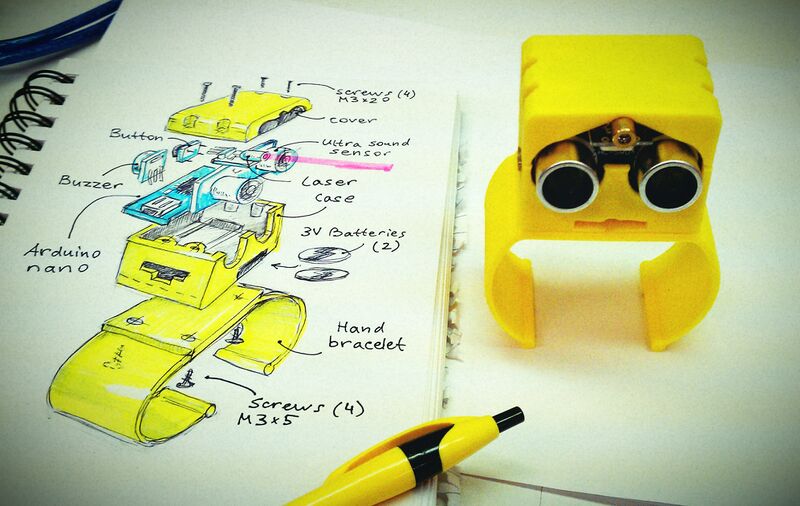 screws (4)
M3x20
cover
Button
Ultra sound
sensor
Buzzer
Laser
case
3V Batteries
(2)
Arduino
nano
Hand
bracelet
Screws (4)
M3x5